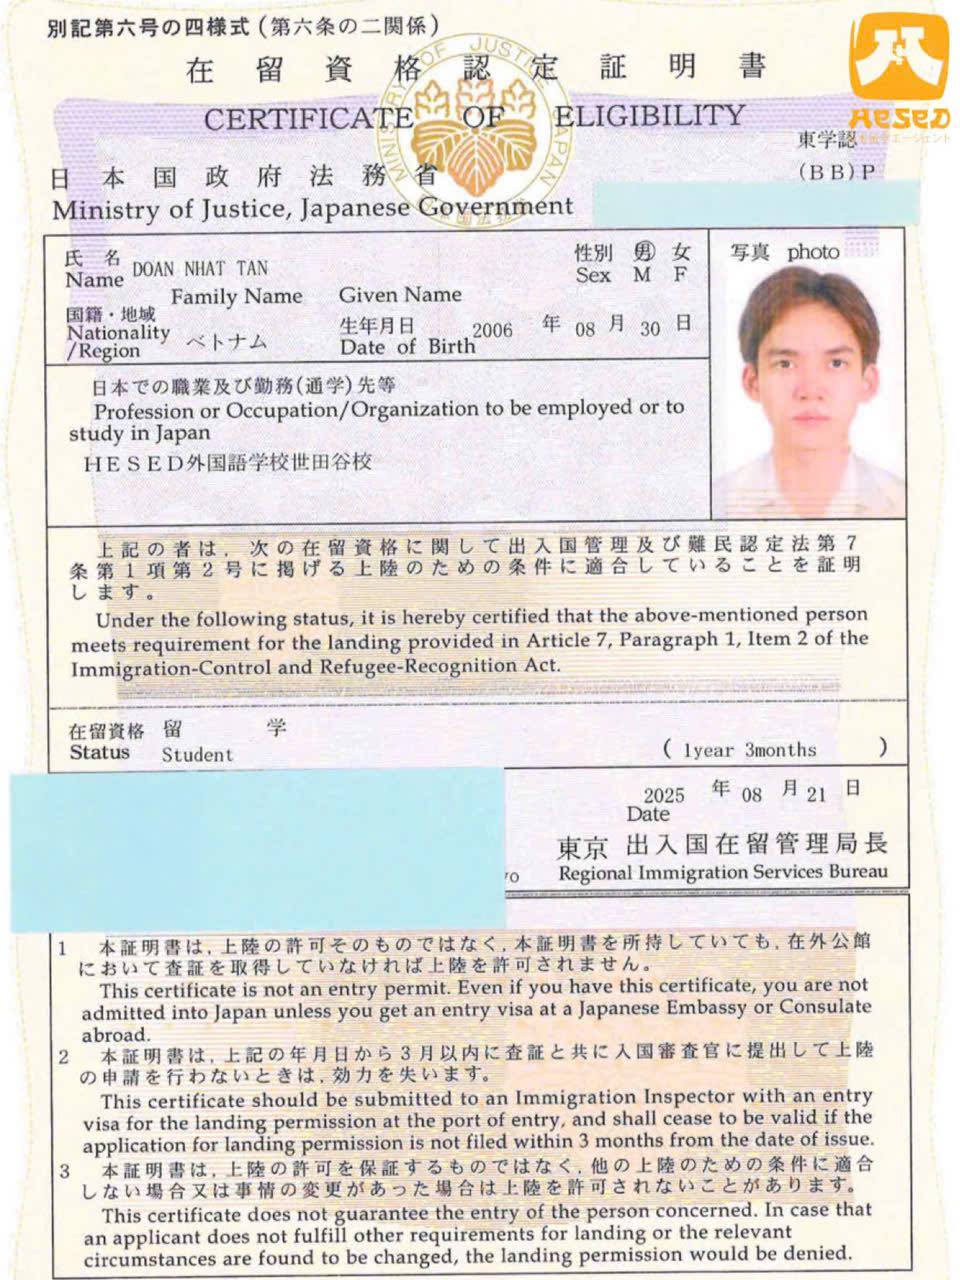 別記第六号の四様式（第六条の二関係）
在留資格認定証明書
CERTIFICATE OF ELIGIBILITY
HESED
東学認
(BB)P
日本国政府法務省
Ministry of Justice, Japanese Government
MINISTRY OF JUSTICE JAPAN
氏名 DOAN NHAT TAN 性別 男 女
Name Family Name Given Name Sex M F
写真 photo
国籍・地域 生年月日 2006 年 08 月 30 日
Nationality ベトナム Date of Birth
/Region
日本での職業及び勤務(通学)先等
Profession or Occupation/Organization to be employed or to
study in Japan
HESED外国語学校世田谷校
上記の者は, 次の在留資格に関して出入国管理及び難民認定法第7
条第1項第2号に掲げる上陸のための条件に適合していることを証明
します。
Under the following status, it is hereby certified that the above-mentioned person
meets requirement for the landing provided in Article 7, Paragraph 1, Item 2 of the
Immigration-Control and Refugee-Recognition Act.
在留資格 留学
Status Student ( 1year 3months )
2025 年 08 月 21 日
Date
東京 出入国在留管理局長
Regional Immigration Services Bureau
1 本証明書は, 上陸の許可そのものではなく, 本証明書を所持していても, 在外公館
において査証を取得していなければ上陸を許可されません。
This certificate is not an entry permit. Even if you have this certificate, you are not
admitted into Japan unless you get an entry visa at a Japanese Embassy or Consulate
abroad.
2 本証明書は, 上記の年月日から3月以内に査証と共に入国審査官に提出して上陸
の申請を行わないときは, 効力を失います。
This certificate should be submitted to an Immigration Inspector with an entry
visa for the landing permission at the port of entry, and shall cease to be valid if the
application for landing permission is not filed within 3 months from the date of issue.
3 本証明書は, 上陸の許可を保証するものではなく, 他の上陸のための条件に適合
しない場合又は事情の変更があった場合は上陸を許可されないことがあります。
This certificate does not guarantee the entry of the person concerned. In case that
an applicant does not fulfill other requirements for landing or the relevant
circumstances are found to be changed, the landing permission would be denied.